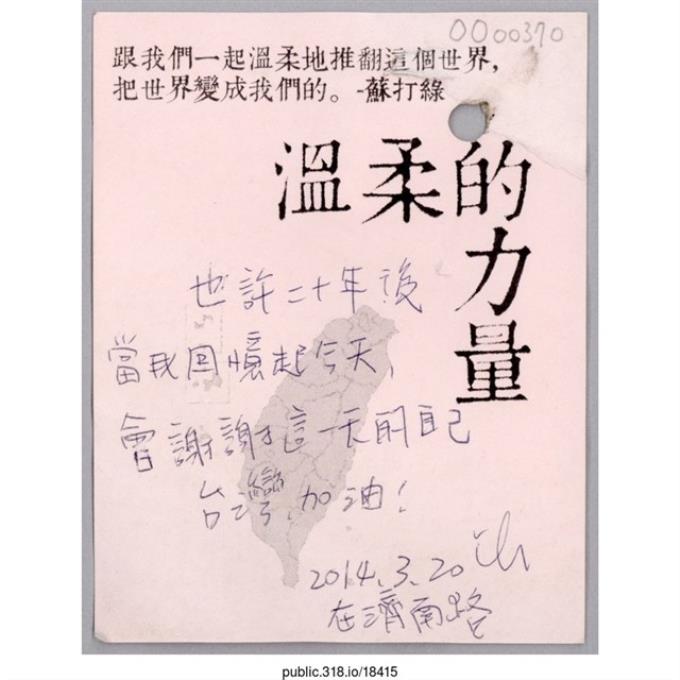 0000370
跟我們一起溫柔地推翻這個世界，
把世界變成我們的。-蘇打綠
溫柔的力量
也許二十年後
當我回憶起今天、
會謝謝這一天的自己
台灣、加油！
2014.3.20
在濟南路
public.318.io/18415